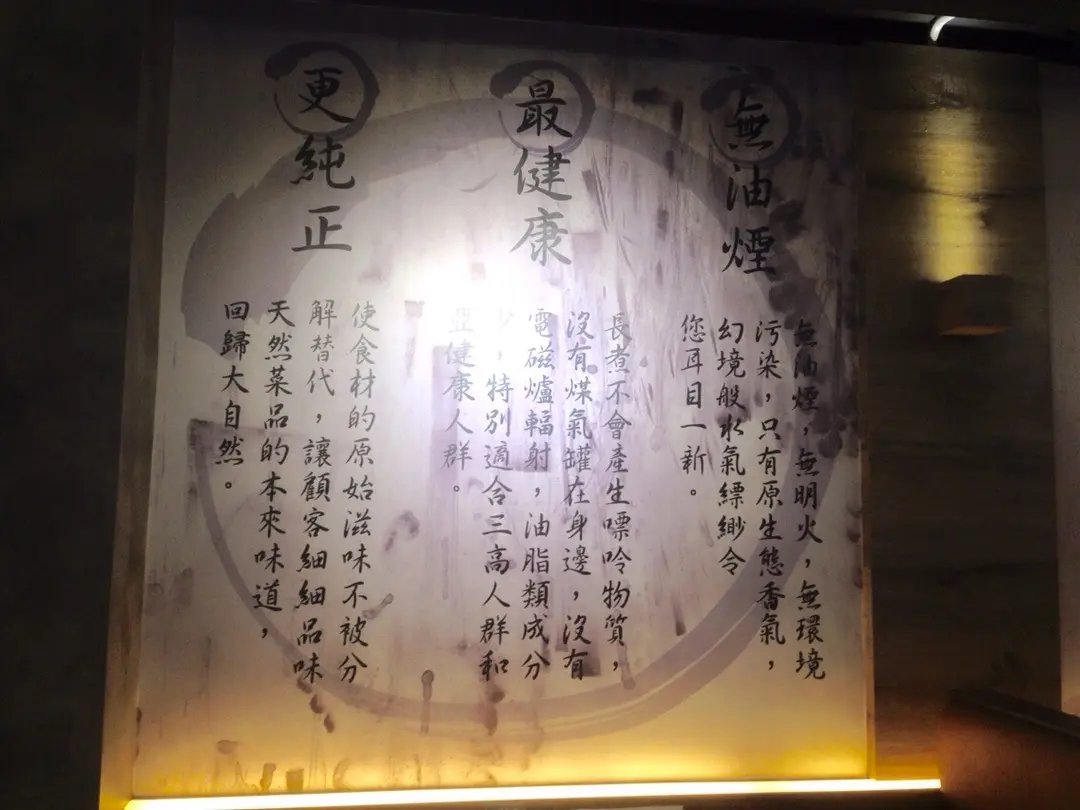 無油煙
無油煙，無明火，無環境
污染，只有原生態香氣，
幻境般水氣縹緲令
您耳目一新。
最健康
長煮不會產生嘌呤物質，
沒有煤氣罐在身邊，沒有
電磁爐輻射，油脂類成分
少，特別適合三高人群和
亞健康人群。
更純正
使食材的原始滋味不被分
解替代，讓顧客細細品味
天然菜品的本來味道，
回歸大自然。